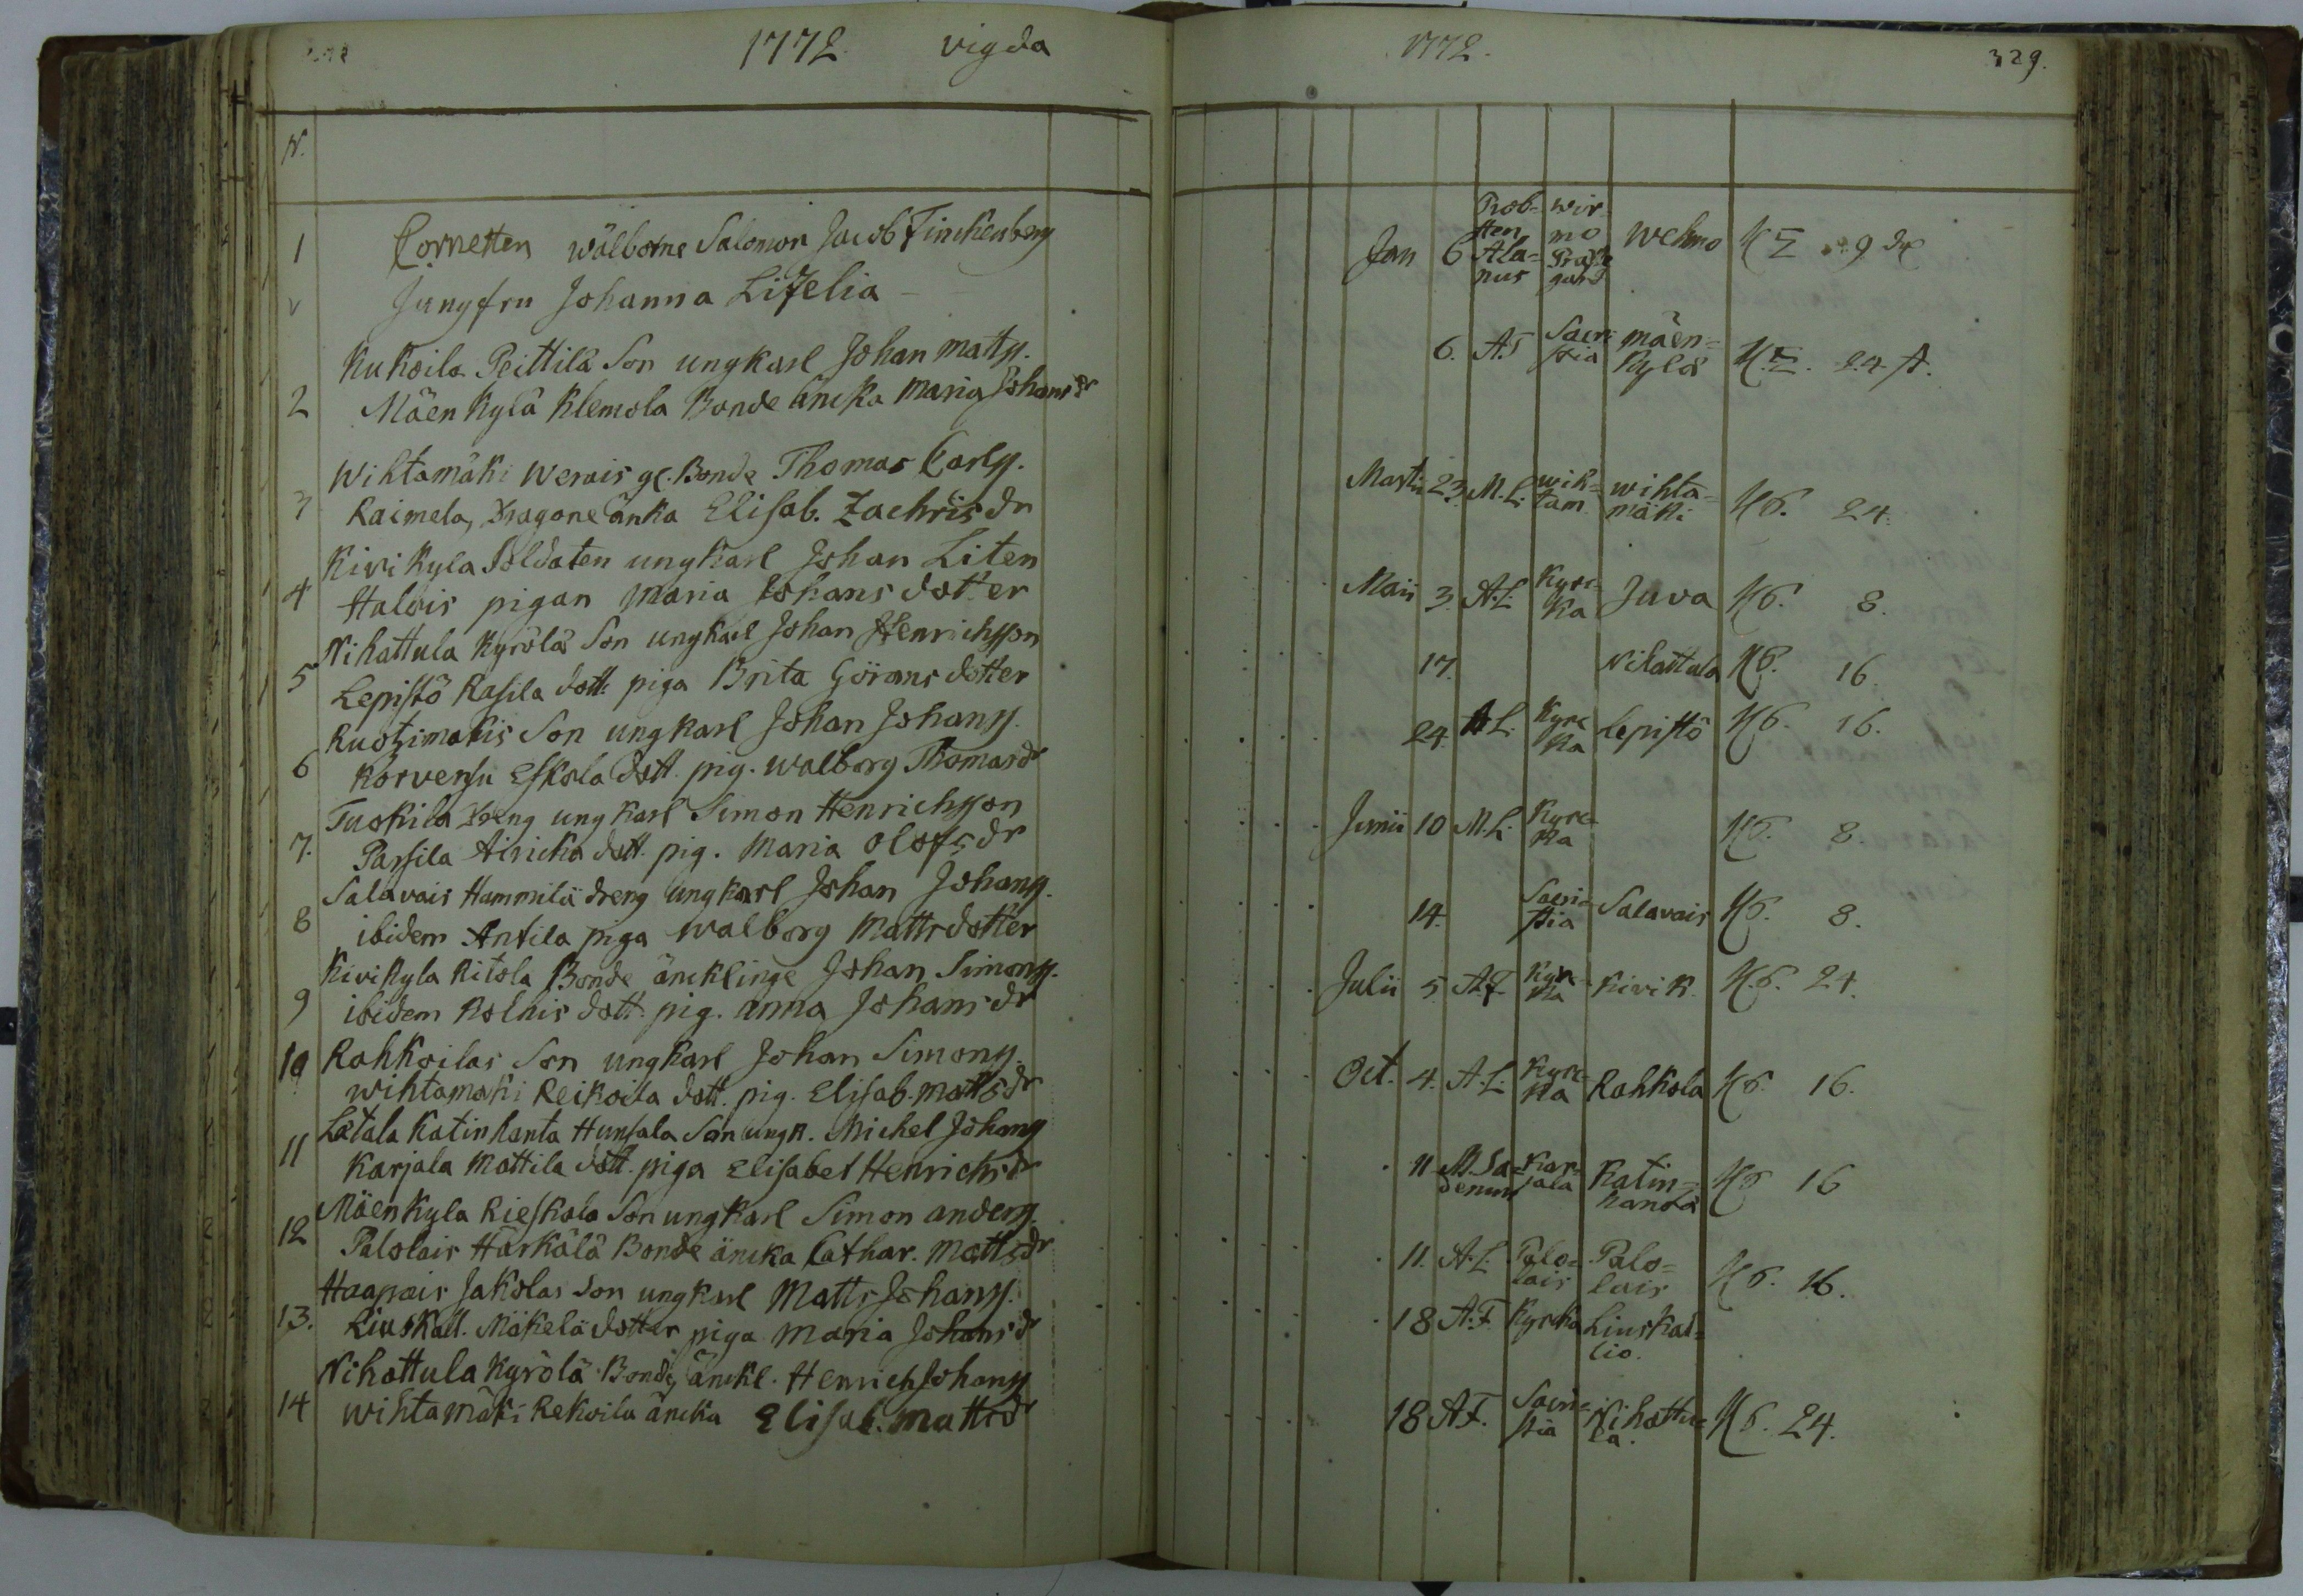 1772. vigda
N.
1 Cornetten wälborne Salomon Jacob Finckenberg
Jungfru Johanna Lizelia
Kukoila Peittilä Son ungkarl Johan Mattss.
2 Mäenkylä Klemola Bonde äncka Maria Johansdr
Wihtamäki Werais gl. Bonde Thomas Carlss.
3 Raimela, Dragone änka Elisab. Zachrisdr
Kivikyla Soldaten ungkarl Johan Liten
4 Halois pigan Maria Johans dotter
Nihattula Kyrölä Son ungkarl Johan Henrichsson
5 Lepistö Rasila dott. piga Brita Görans dotter
Ruotzimakis Son ungkarl Johan Johanss.
6 Korvensu Eskola dott. pig. Walborg Thomasdr
Tuokila Dreng ungkarl Simon Henrichsson
7. Parsila Airicka dott. pig. Maria Olofsdr
Salavais Hammilä dreng ungkarl Johan Johanss.
8 ibidem Antila piga Walborg Mattsdotter
Kivikyla Ritola Bonde äncklinge Johan Simonss.
9 ibidem Kolkis dott. pig. Anna Johansdr
10 Rahkoilas Son ungkarl Johan Simonss.
Wihtamaki Reikoila dott. pig. Elisab. Mattsdr
Latala Katinhanta Hunsala Son ungk. Michel Johanss
11 Karjala Mattila dott. piga Elisabet Henrichsdr
Mäenkyla Rieskala Son ungkarl Simon Anderss.
12 Palolais Härkälä Bonde äncka Cathar. Mattsdr
Haapais Jakolas Son ungkarl Matts Johanss.
13. Liuskall. Mäkelä dotter piga Maria Johansdr
Nihattula Kyrölä Bond. änckl. Henrich Johanss
14 Wihtamäki Rekoila äncka Elisab. Mattsdr
1772. 329.
Jan 6 Prob-
sten
Ala-
nus Wir-
mo
Präst
gård Wehmo
6. Sacri-
stia Mäen-
kylä 24
Martii 23. M.L. Wih-
tam. Wihta-
mäki 24.
Maii 3. A.L. Kyrc-
ka Juva 8.
17. Nihattula 16.
24. A.L. Kyrc
ka Lepistö 16.
Junii 10 M.L. Kyrc-
ka 8.
14. Sacri-
stia Salavais 8.
Julii 5 A.F. Kyrc-
ka Kivik. 24.
Oct. 4. A.L. Kyrc-
ka Rahkola 16.
11 Kar-
jala Katin-
hanta 16
11. A.L. Palo-
lais Palo-
lais 16.
18 A.F. Kyrcka Liuskal-
lio.
18 A.F. Sacri-
stia Nihattu-
la. 24.